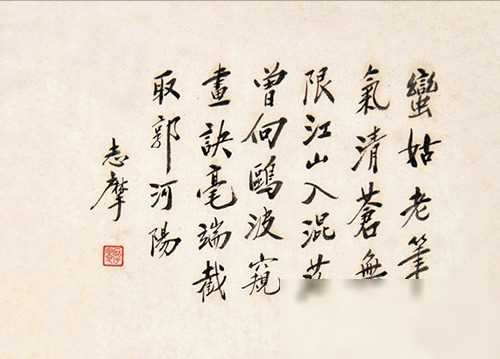 蠻姑老筆
氣清蒼無
限江山入混茫
曾向鷗波窺
畫訣毫端截
取郭河陽
志摩